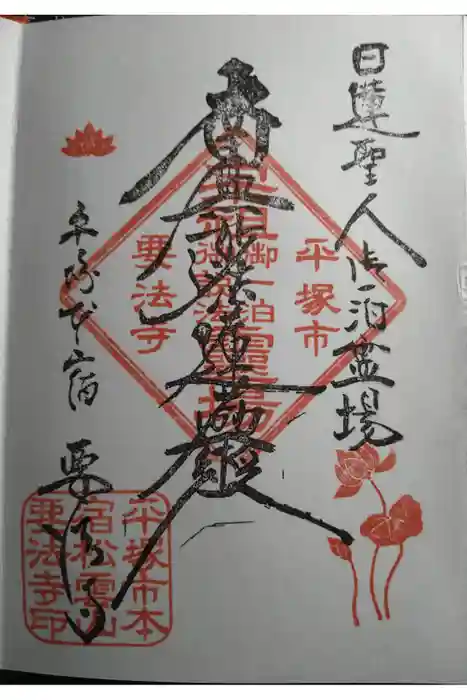 日蓮聖人御一泊霊場
南無妙法蓮華経
平塚本宿 要法寺
平塚市
御一泊
靈場
要法寺
平塚市本
宿松雲山
要法寺印